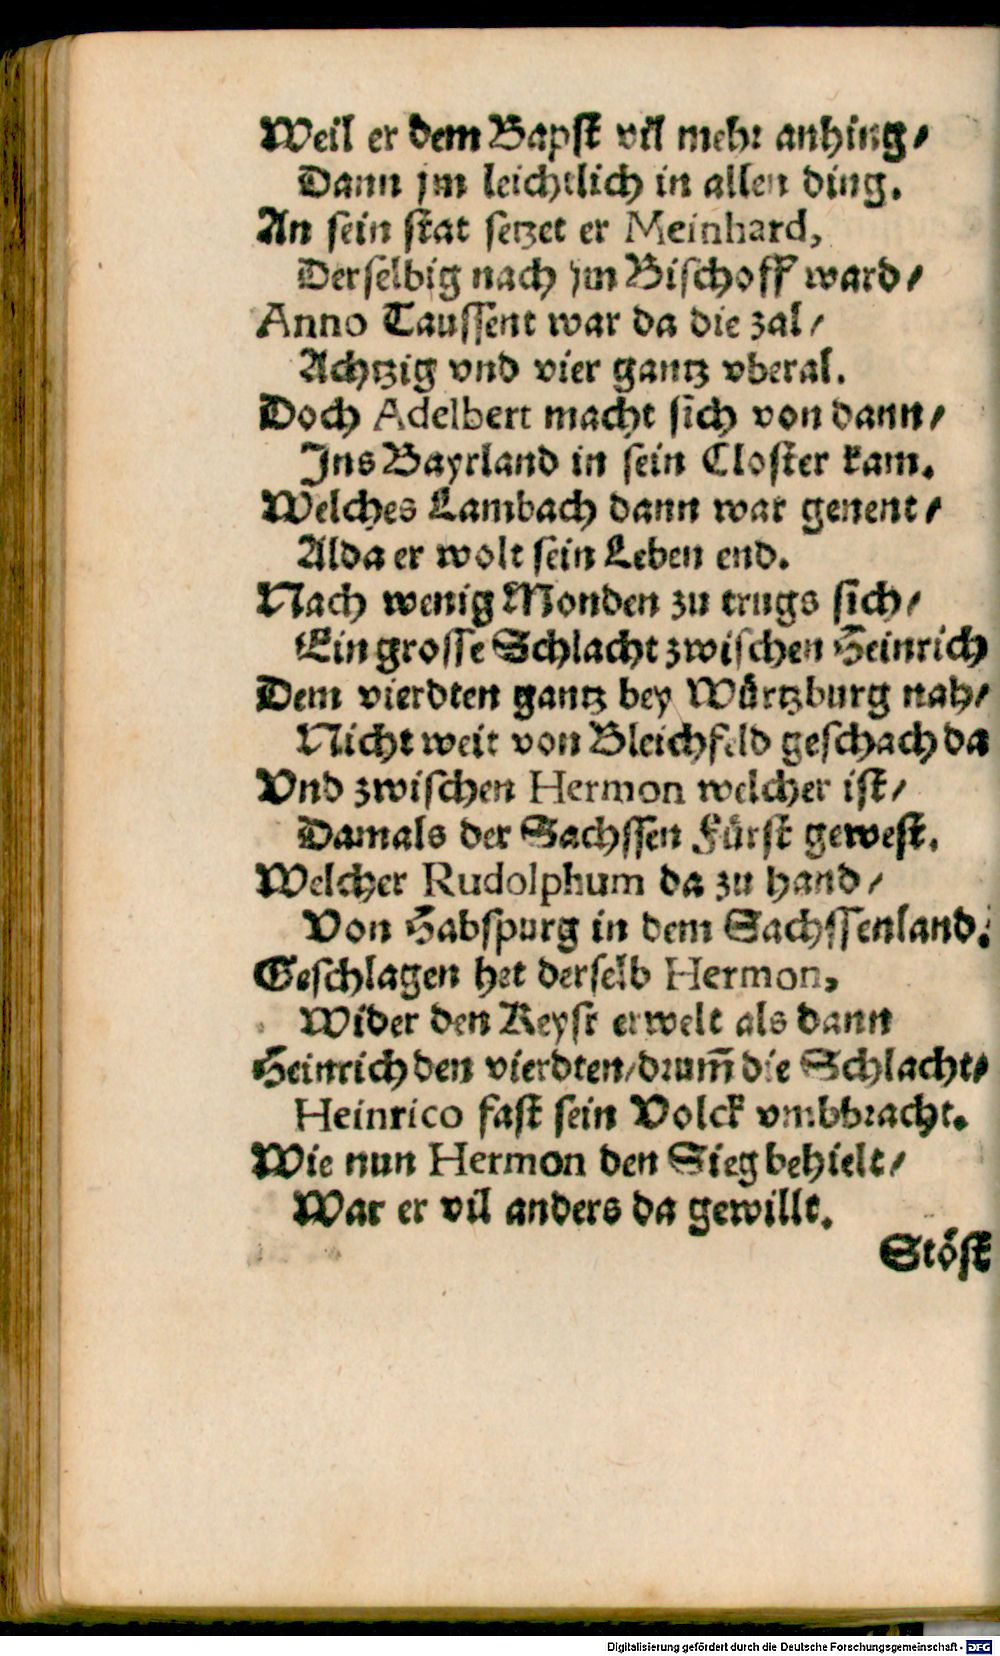 Weil er dem Bapst vil mehr anhing/
Dann jm leichtlich in allen ding.
An sein stat setzet er Meinhard,
Derselbig nach jm Bischoff ward/
Anno Taussent war da die zal/
Achtzig vnd vier gantz vberal.
Doch Adelbert macht sich von dann/
Jns Bayrland in sein Closter kam.
Welches Lambach dann war genent/
Alda er wolt sein Leben end.
Nach wenig Monden zu trugs sich/
Ein grosse Schlacht zwischen Heinrich
Dem vierdten gantz bey Würtzburg nah/
Nicht weit von Bleichfeld geschach da
Vnd zwischen Hermon welcher ist/
Damals der Sachssen Fürst gewest.
Welcher Rudolphum da zu hand/
Von Habspurg in dem Sachssenland.
Geschlagen het derselb Hermon,
Wider den Keysr erwelt als dann
Heinrich den vierdten/drum̄ die Schlacht/
Heinrico fast sein Volck vmbbracht.
Wie nun Hermon den Sieg behielt/
War er vil anders da gewillt.
Stöst
Digitalisierung gefördert durch die Deutsche Forschungsgemeinschaft - DFG